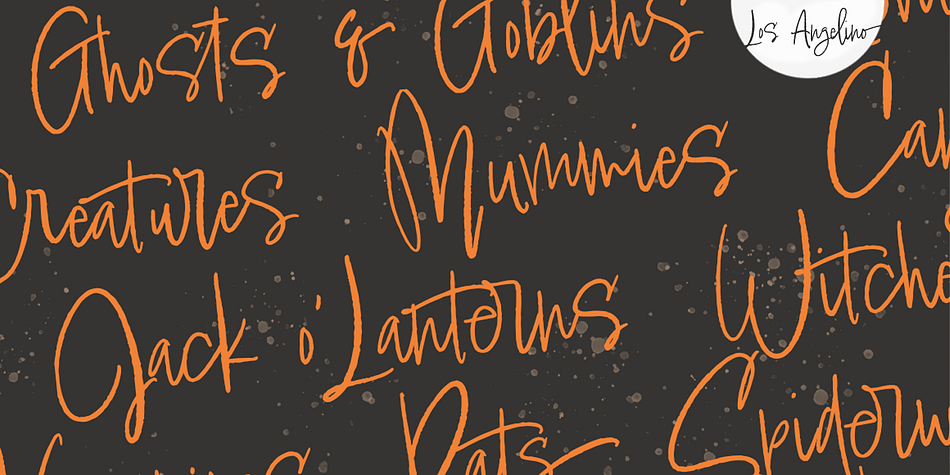 Ghosts & Goblins
Los Angelino
Creatures
Mummies
Jack o' Lanterns
Witche
Bats
Spiderw